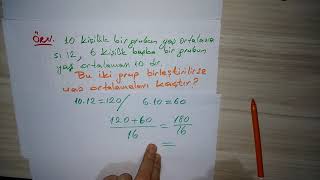 ÖRN. 10 kişilik bir grubun yaş ortalama-
sı 12, 6 kişilik başka bir grubun
yaş ortalaması 10 dr.
Bu iki grup birleştirilirse
yaş ortalamaları kaçtır?
10.12=120/ 6.10=60
120+60/16 = 180/16
=